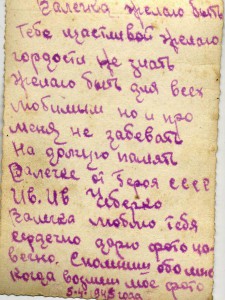 Галечка желаю быть
Тебе щастливой желаю
гордости не знать
желаю быть для всех
любимым но и про
меня не забевать
На долгую память
Галечке от Героя СССР
Ив. Ив
Галечка люблю тебя
сердечно дарю фото
Спомниш обо мне
когда возмиш мое фото
5-4-1945 года